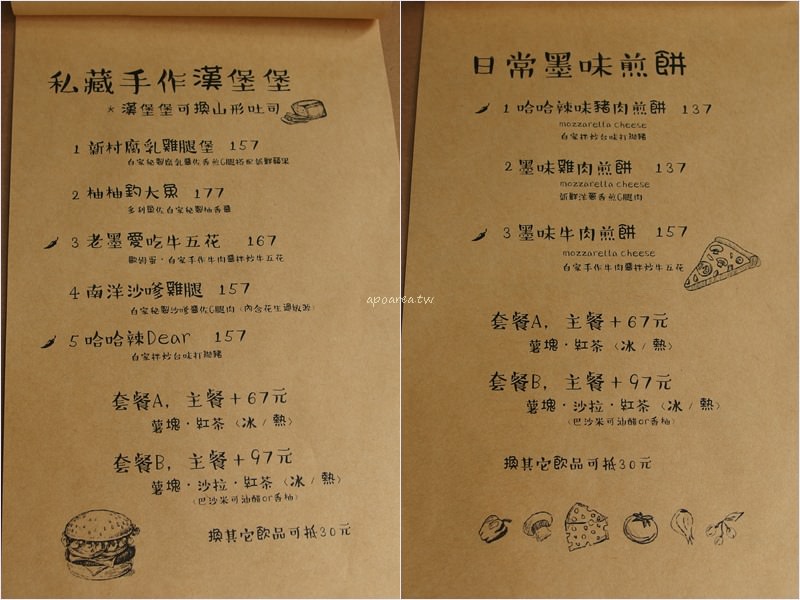 私藏手作漢堡堡
*漢堡堡可換山形吐司
1 新村腐乳雞腿堡 157
自家秘製腐乳醬佐香煎G腿搭配新鮮蘋果
2 柚柚釣大魚 177
多利魚佐自家秘製柚香醬
3 老墨愛吃牛五花 167
歐姆蛋·自家手作牛肉醬拌炒牛五花
4 南洋沙嗲雞腿 157
自家秘製沙嗲醬佐G腿肉(內含花生過敏源)
5 哈哈辣Dear 157
自家拌炒台味打拋豬
套餐A, 主餐+67元
薯塊·紅茶(冰/熱)
套餐B, 主餐+97元
薯塊·沙拉·紅茶(冰/熱)
(巴沙米可油醋or香柚)
換其它飲品可抵30元
日常墨味煎餅
1 哈哈辣味豬肉煎餅 137
mozzarella cheese
自家拌炒台味打拋豬
2 墨味雞肉煎餅 137
mozzarella cheese
新鮮洋蔥香煎G腿肉
3 墨味牛肉煎餅 157
mozzarella cheese
自家手作牛肉醬拌炒牛五花
套餐A, 主餐+67元
薯塊·紅茶(冰/熱)
套餐B, 主餐+97元
薯塊·沙拉·紅茶(冰/熱)
(巴沙米可油醋or香柚)
換其它飲品可抵30元
apoarea.tw